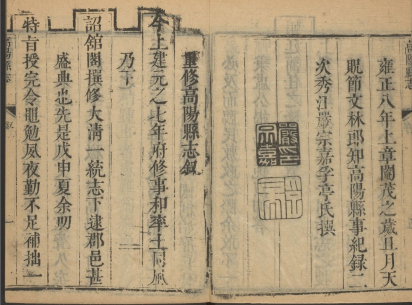 雍正八年上章閹茂之歲且月天
貺節文林郎知高陽縣事紀錄二
次秀江嚴宗嘉孚亭氏撰
重修高陽縣志叙
今上建元之七年府修事和率土同風
乃下
詔館閣撰修大清一統志下逮郡邑甚
盛典也先是戊申夏余叨
特旨授完令黽勉夙夜勤不足補拙一
高陽縣志